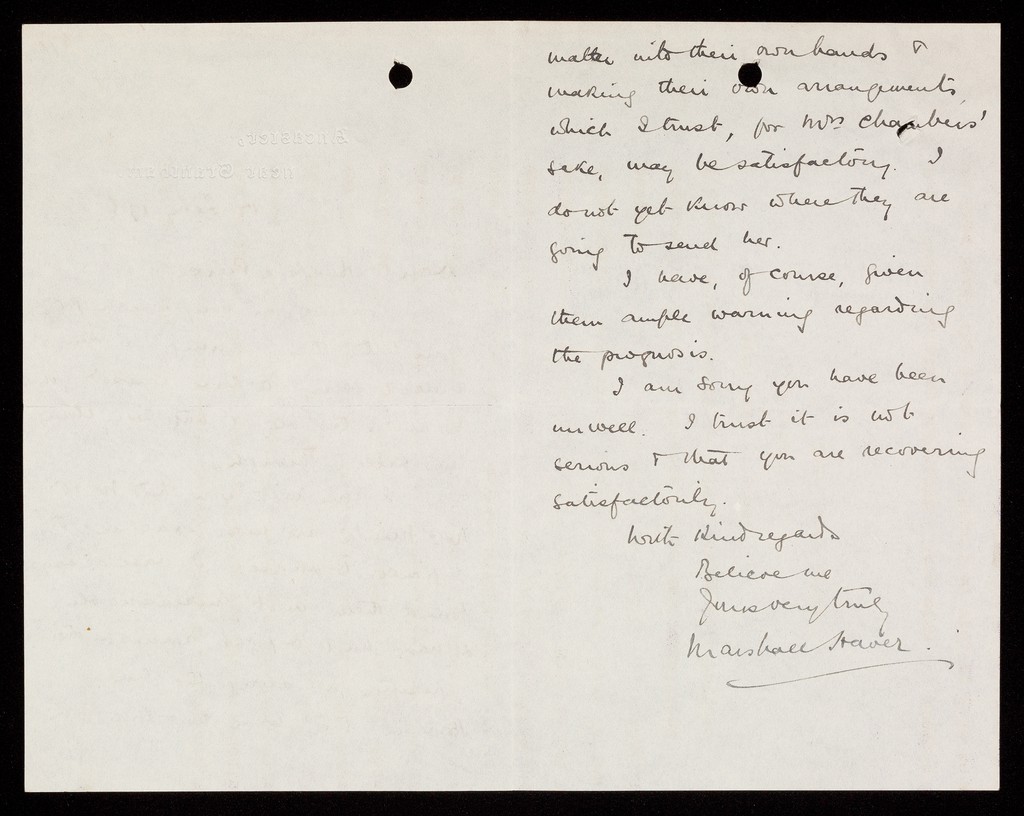 matter into their own hands &
making their own arrangements,
which I trust, for Mrs Chambers'
sake, may be satisfactory. I
do not yet know where they are
going to send her.
I have, of course, given
them ample warning regarding
the prognosis.
I am sorry you have been
unwell. I trust it is not
serious & that you are recovering
satisfactorily.
With Kind regards
Believe me
Yours very truly
Marshall